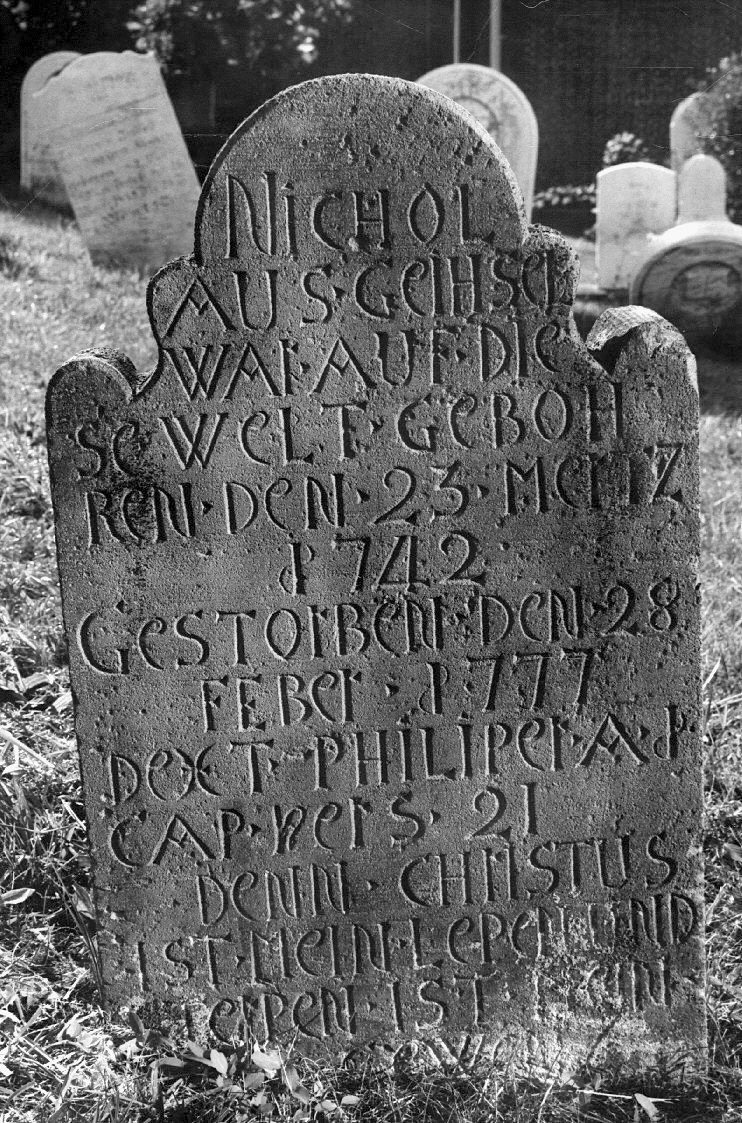 NICHOL
AUS·GEIHSEL
WAR·AUF·DIE
SE WELT·GEBOH
REN·DEN·23·MERTZ
1742
GESTORBEN·DEN·28
FEBER·1777
DEXT·PHILIPER·AD
CAP·VERS·21
DENN·CHRISTUS
IST·MEIN·LEBEN UND
STERBEN·IST MEIN
GEWIN